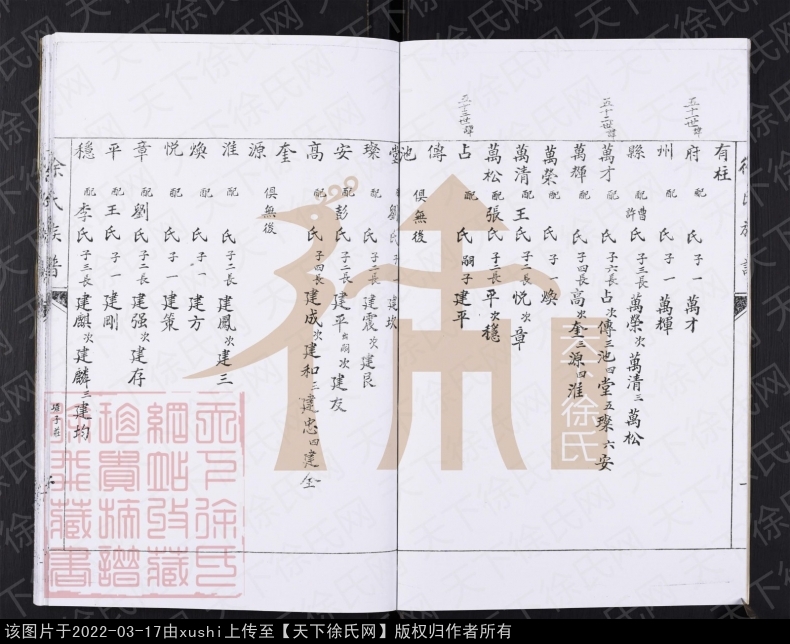 徐氏族譜
有柱
五十一世
府 配 氏 子一 萬才
州 配 氏 子一 萬輝
縣 配 曹許 氏 子三 長萬榮 次萬清 三萬松
五十二世
萬才 配 氏 子六 長占 次傳 三池 四堂 五璨 六安
萬輝 配 氏 子四 長高 次奎 三源 四淮
萬榮 配 氏 子一 煥
萬清 配 王氏 子二 悦 次章
萬松 配 張氏 子二 長平 次穩
五十三世
占 配 氏 嗣子 建平
傳 俱無後
池
堂 配 劉氏 子一 建坎
璨 配 氏 子二 長建震 次建艮
安 配 彭氏 子二 長建平 出嗣 次建友
高 配 氏 子四 長建成 次建和 三建忠 四建全
奎 俱無後
源
淮 配 氏 子二 長建鳳 次建三
煥 配 氏 子一 建方
悦 配 氏 子一 建策
章 配 劉氏 子二 長建强 次建存
平 配 王氏 子一 建剛
穩 配 李氏 子三 長建麒 次建麟 三建均
徐氏族譜
徐
天下徐氏
天下徐氏网
天下徐氏
網站收藏
珍貴捕譜
藏書
该图片于2022-03-17由xushi上传至【天下徐氏网】版权归作者所有